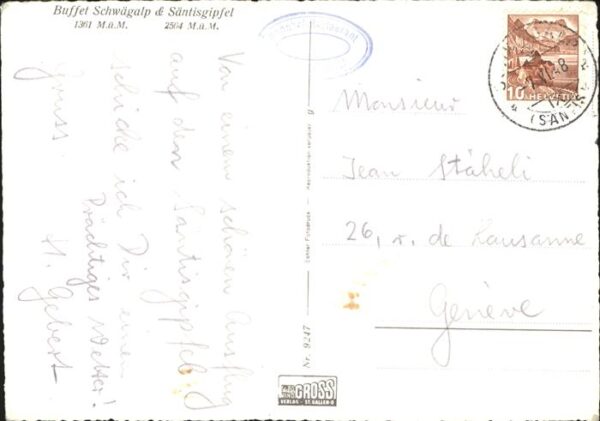 Buffet Schwägalp & Säntisgipfel
1361 M.ü.M. 2504 M.ü.M.
Von einem schönen Ausflug
auf den Säntisgipfel
schicke ich Dir einen
Gruss.
Prächtiges Wetter!
H. Gebert
Nr. 9247
GROSS
VERLAG - ST. GALLEN-O
10 HELVETIA
VI.48
(SÄNTIS)
Monsieur
Jean Stäheli
26, r. de Lausanne
Genève